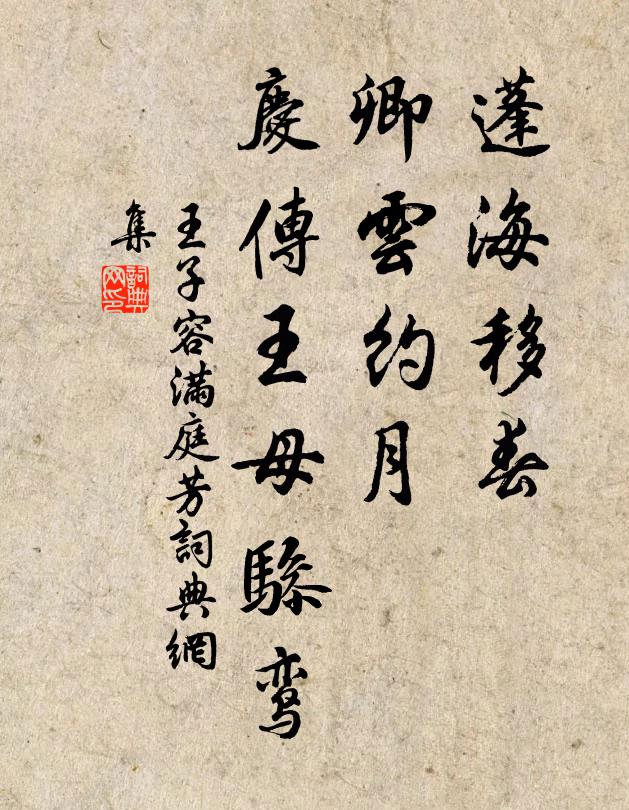 蓬海移春
卿雲約月
慶傳王母驂鸾
王子容滿庭芳詞典網
集
詞典
网印